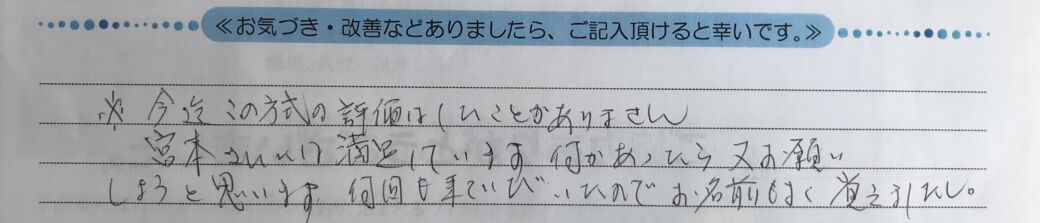 ≪お気づき・改善などありましたら、ご記入頂けると幸いです。≫
※ 今迄この方式の評価はしたことがありません
宮本さんには満足しています 何かあったら又お願い
しようと思います 何回も来ていただいたのでお名前もよく覚えました。